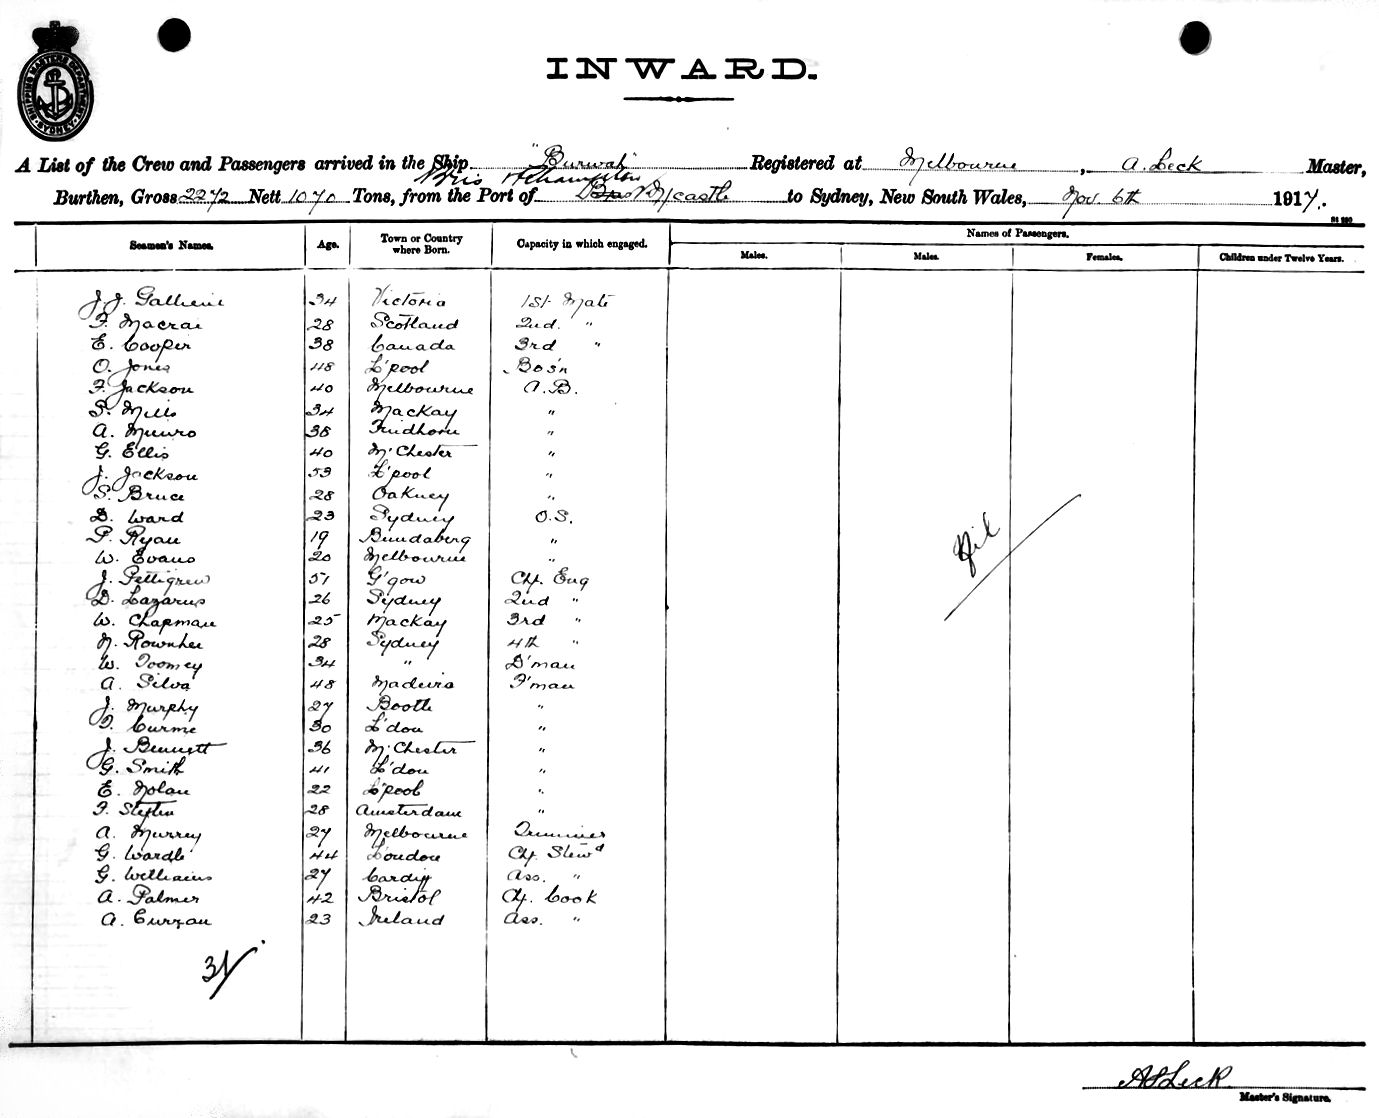 SHIPPING MASTERS DEPARTMENT SYDNEY
INWARD.
A List of the Crew and Passengers arrived in the Ship "Burwah" Registered at Melbourne, A. Leck Master,
Burthen, Gross 2272 Nett 1070 Tons, from the Port of N'castle to Sydney, New South Wales, Nov. 6th 1917.
Seamen's Names. Age. Town or Country where Born. Capacity in which engaged. Names of Passengers.
Males. Males. Females. Children under Twelve Years.
J. J. 34 Victoria 1st Mate
F. Macrai 28 Scotland 2nd. "
E. Cooper 38 Canada 3rd "
O. Jones 48 L'pool Bos'n
F. Jackson 40 Melbourne A.B.
P. Mills 34 Mackay "
A. Munro 38 "
G. Ellis 40 M'Chester "
J. Jackson 53 L'pool "
S. Bruce 28 Oakney "
D. Ward 23 Sydney O.S.
P. Ryan 19 Bundaberg "
W. Evans 20 Melbourne "
J. Pettigrew 51 G'gow Ch. Eng
D. Lazarus 26 Sydney 2nd "
W. Chapman 25 Mackay 3rd "
N. 28 Sydney 4th "
W. Toomey 34 " D'man
A. Silva 48 Madeira F'man
J. Murphy 27 Bootle "
30 L'don "
J. Bennett 36 M'Chester "
G. Smith 41 L'don "
E. Nolan 22 L'pool "
F. 28 Amsterdam "
A. Murrey 27 Melbourne Trimmer
G. Wardle 44 London Ch. Stewd
G. Williams 27 Cardiff Ass. "
A. Palmer 42 Bristol Ch. Cook
A. Curzan 23 Ireland Ass. "
Nil
31
A Leck
Master's Signature.